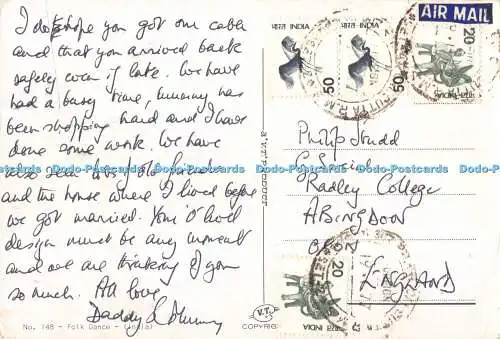 I do hope you got our cable
and that you arrived back
safely even if late. We have
had a busy time, Mummy has
been shopping hard and I have
done some work. We have
also seen lots of old friends
and the house where I lived before
we got married. Your O'level
design must be any moment
and we are thinking of you
so much. All love
Daddy & Mummy
No. 148 - Folk Dance - (India)
A V.T. PRODUCT
V.T.
COPYRIG
AIR MAIL
INDIA
50
INDIA
50
20
CUTTA R.M.S
Philip Judd
C Social
Radley College
ABINGDON
OXON
ENGLAND
20
INDIA
Dodo-Postcards Dodo-Postcards Dodo-Postcards Dodo-Postcards Dodo-Postcards